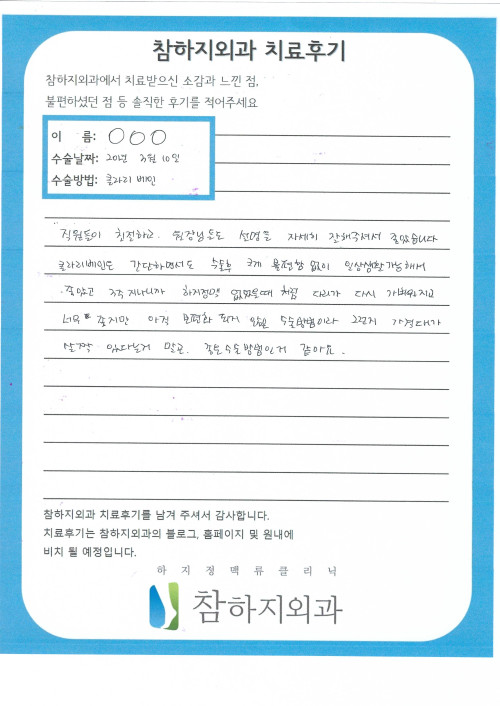 참하지외과 치료후기
참하지외과에서 치료받으신 소감과 느낀 점,
불편하셨던 점 등 솔직한 후기를 적어주세요
이 름: ○○○
수술날짜: 20년 3월 10일
수술방법: 클라리베인
직원들이 친절하고. 원장님도 설명을 자세히 잘해주셔서 좋았습니다
클라리베인도 간단하면서도 수술후 크게 불편함 없이 일상생활가능해서
좋았고 3주 지나니까 하지정맥 없었을때 처럼 다리가 다시 가벼워지고
너무 좋지만 아직 보편화 되지 않은 수술방법이라 그런지 가격대가
살짝 있다는거 말고. 좋은수술방법인거 같아요.
참하지외과 치료후기를 남겨 주셔서 감사합니다.
치료후기는 참하지외과의 블로그, 홈페이지 및 원내에
비치 될 예정입니다.
하 지 정 맥 류 클 리 닉
참하지외과